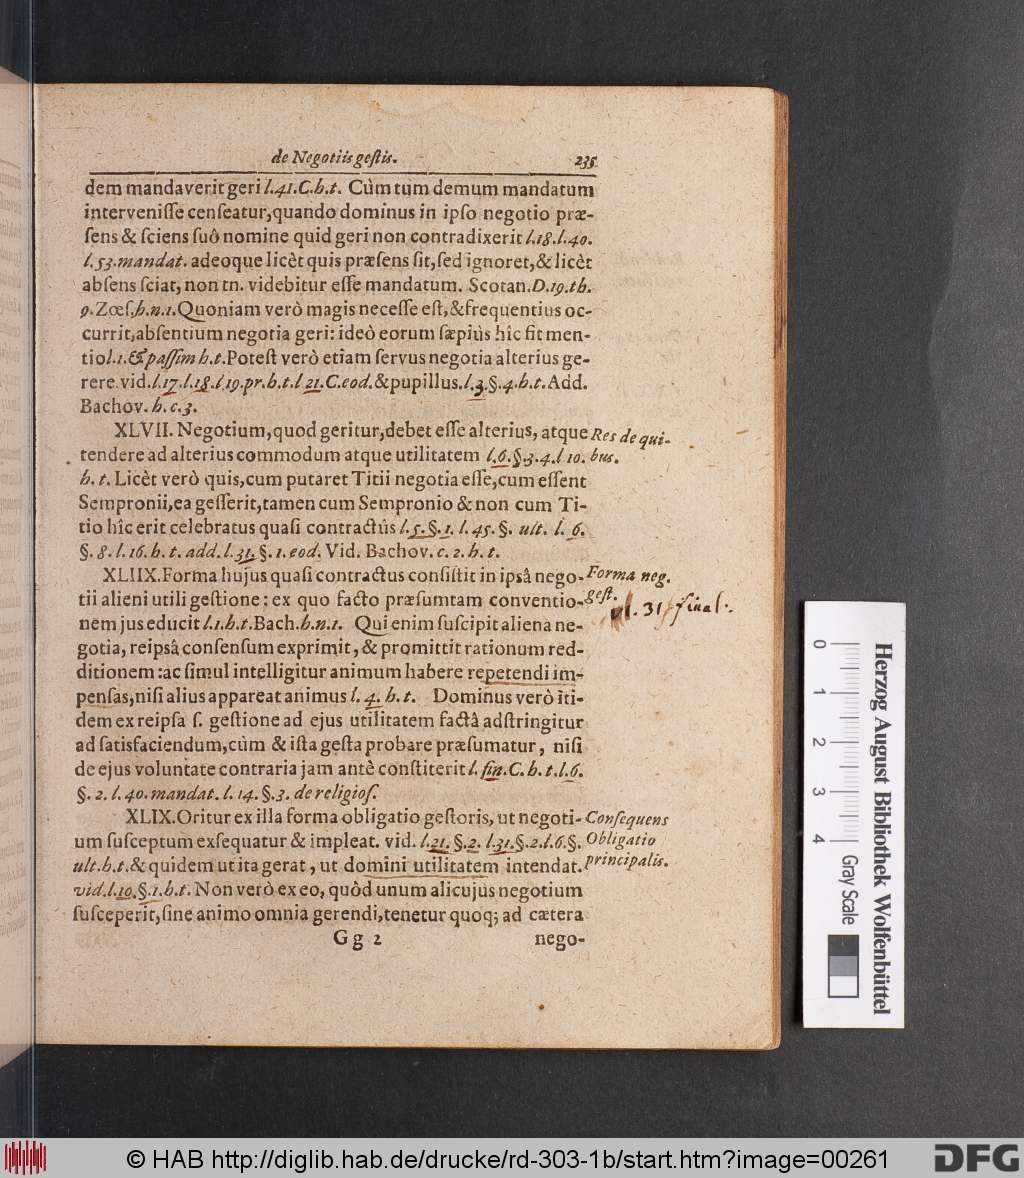 de Negotiis gestis. 235
dem mandaverit geri l.41.C.h.t. Cùm tùm demum mandatum
interveniſſe cenſeatur, quando dominus in ipſo negotio præ-
ſens & ſciens ſuô nomine quid geri non contradixerit l.18.l.40.
l.53.mandat. adeoque licèt quis præſens ſit, ſed ignoret, & licèt
abſens ſciat, non tn. videbitur eſſe mandatum. Scotan.D.19.th.
9.Zœſ.h.n.1.Quoniam verò magis neceſſe eſt, & frequentius oc-
currit, abſentium negotia geri: ideò eorum ſæpiùs hîc fit men-
tio l.1.& paſſim h.t. Poteſt verò etiam ſervus negotia alterius ge-
rere vid.l.17.l.18.l.19.pr.h.t.l 21.C.eod.& pupillus.l.3.§.4.h.t.Add.
Bachov. h.c.3.
XLVII. Negotium, quod geritur, debet eſſe alterius, atque
Res de qui-
tendere ad alterius commodum atque utilitatem l.6.§.3.4.l 10.
bus.
h.t. Licèt verò quis, cum putaret Titii negotia eſſe, cum eſſent
Sempronii, ea geſſerit, tamen cum Sempronio & non cum Ti-
tio hîc erit celebratus quaſi contractûs l.5.§.1. l.45.§. ult. l. 6.
§.8.l.16.h.t. add.l.31.§.1.eod. Vid. Bachov.c.2.h.t.
XLIIX.Forma hujus quaſi contractus conſiſtit in ipsâ nego-
Forma neg.
tii alieni utili geſtione: ex quo facto præſumtam conventio-
geſt.
nem jus educit l.1.h.t.Bach.h.n.1. Qui enim ſuſcipit aliena ne-
l. 31 § final.
gotia, reipsâ conſenſum exprimit, & promittit rationum red-
ditionem: ac ſimul intelligitur animum habere repetendi im-
penſas, niſi alius appareat animus l. 4. h. t. Dominus verò iti-
dem ex reipſa ſ. geſtione ad ejus utilitatem factâ adſtringitur
ad ſatisfaciendum, cùm & iſta geſta probare præſumatur, niſi
de ejus voluntate contraria jam antè conſtiterit l. fin.C.h.t.l.6.
§.2.l.40.mandat.l.14.§.3. de religioſ.
XLIX.Oritur ex illa forma obligatio geſtoris, ut negoti-
Conſequens
um ſuſceptum exſequatur & impleat. vid. l.21. §.2. l.31.§.2.l.6.§.
Obligatio
ult.h.t.& quidem ut ita gerat, ut domini utilitatem intendat.
principalis.
vid.l.10.§.1.h.t. Non verò ex eo, quòd unum alicujus negotium
ſuſceperit, ſine animo omnia gerendi, tenetur quoq; ad cætera
Gg 2 nego-
0 1 2 3 4 Gray Scale
Herzog August Bibliothek Wolfenbüttel
© HAB http://diglib.hab.de/drucke/rd-303-1b/start.htm?image=00261
DFG